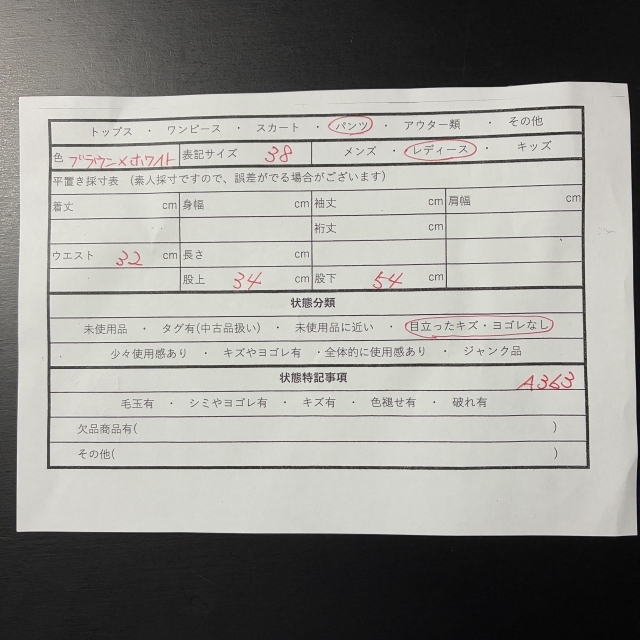 トップス ・ ワンピース ・ スカート ・ パンツ ・ アウター類 ・ その他
色 ブラウン×ホワイト 表記サイズ 38 メンズ ・ レディース ・ キッズ
平置き採寸表 (素人採寸ですので、誤差がでる場合がございます)
着丈 cm 身幅 cm 袖丈 cm 肩幅 cm
裄丈 cm
ウエスト 32 cm 長さ cm
股上 34 cm 股下 54 cm
状態分類
未使用品 ・ タグ有(中古品扱い) ・ 未使用品に近い ・ 目立ったキズ・ヨゴレなし
少々使用感あり ・ キズやヨゴレ有 ・全体的に使用感あり ・ ジャンク品
状態特記事項 A363
毛玉有 ・ シミやヨゴレ有 ・ キズ有 ・ 色褪せ有 ・ 破れ有
欠品商品有( )
その他( )